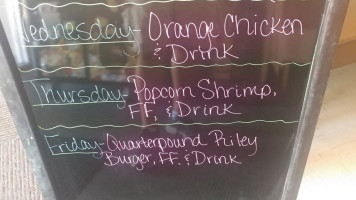 Wednesday- Orange Chicken
& Drink
Thursday- Popcorn Shrimp,
FF, & Drink
Friday- Quarterpound Riley
Burger, FF. & Drink